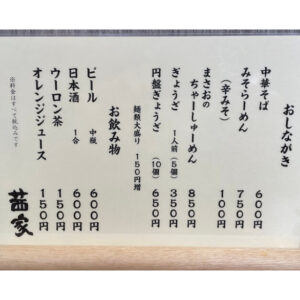 おしながき
中華そば 600円
みそらーめん 750円
(辛みそ) 100円
まさおの
ちゃーしゅーめん 850円
ぎょうざ 1人前(5個) 350円
円盤ぎょうざ (10個) 650円
麺類大盛り 150円増
お飲み物
ビール 中瓶 600円
日本酒 1合 600円
ウーロン茶 150円
オレンジジュース 150円
※料金はすべて税込みです